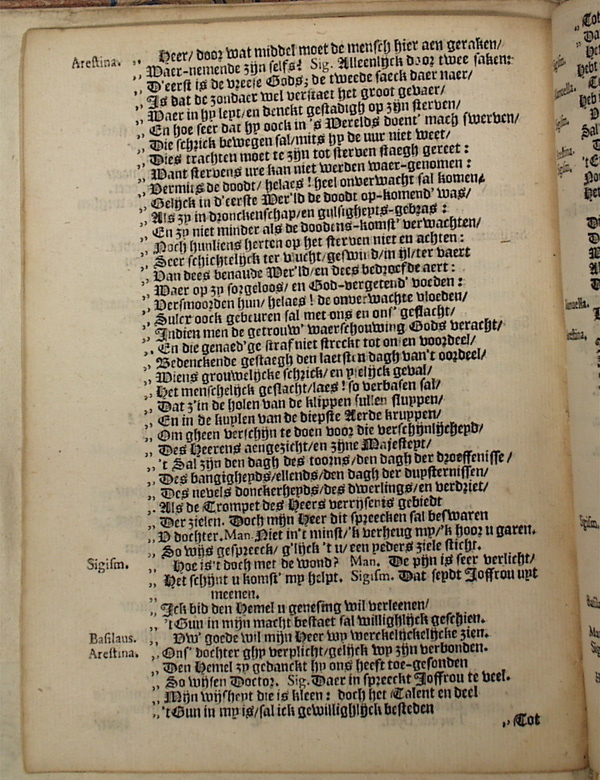 Arestina. ,, Heer/ door wat middel moet de mensch hier aen geraken/
,, Waer-nemende zijn selfs? Sig. Alleenlijck door twee saken:
,, D'eerst is de vreeje Gods; de tweede saeck daer naer/
,, Is dat de zondaer wel verstaet het groot gevaer/
,, Waer in hy leyt/ en denckt gestadigh op zijn sterven/
,, En hoe seer dat hy oock in 's Werelds doent' mach swerven/
,, Die schrick bewegen sal/ mits hy de uur niet weet/
,, Dies trachten moet te zijn tot sterven staegh gereet:
,, Want stervens ure kan niet werden waer-genomen:
,, Vermits de doodt/ helaes! heel onverwacht sal komen/
,, Gelijck in d'eerste Wer'ld de doodt op-komend' was/
,, Als zy in dronckenschap/ en gulsigheyts-gebras:
,, En zy niet minder als de doodens-komst' verwachten/
,, Noch hunliens herten op het sterven niet en achten:
,, Seer schichtelijck ter vlucht/ geswind/ in ijl/ ter vaert
,, Van dees benaude Wer'ld/ en dees bedroefde aert:
,, Waer op zy sorgeloos/ en God-vergetend' voeden:
,, Versmoorden hun/ helaes! de onverwachte vloeden/
,, Sulcx oock gebeuren sal met ons en ons' geslacht/
,, Indien men de getrouw' waerschouwing Gods veracht/
,, En die genaed'ge straf niet streckt tot ons en voordeel/
,, Bedenckende gestaegh den laetsten dagh van't oordeel/
,, Wiens grouwelijcke schrick/ en yselijck geval/
,, Het menschelijck geslacht/ laes! so verbasen sal/
,, Dat z'in de holen van de klippen sullen sluppen/
,, En in de kuylen van de diepste Aerde kruppen/
,, Om gheen verschijn te doen voor die verschijnlijcheyd/
,, Des Heerens aengezicht/ en zijne Majesteyt/
,, 't Sal zijn den dagh des toorns/ den dagh der droeffenisse/
,, Des bangigheyds/ ellends/ den dagh der duysternissen/
,, Des nevels donckerheyds/ des dwerlings/ en verdriet/
,, Als de Trompet des Heers verrysenis gebiedt
,, Der zielen. Doch mijn Heer dit spreecken sal beswaren
,, V dochter. Man. Niet in't minst/ 'k verheug my/ 'k hoor u garen.
,, So wijs gespreeck/ g'lijck 't u/ een yeders ziele sticht.
Sigism. ,, Hoe is't doch met de wond? Man. De pijn is seer verlicht/
,, Het schijnt u komst' my helpt. Sigism. Dat seydt Joffrou uyt
meenen.
,, Ick bid den Hemel u genesing wil verleenen/
,, 't Gun in mijn macht bestaet sal willighlijck geschien.
Basilaus. ,, Uw' goede wil mijn Heer wy werckelijckelijcke zien.
Arestina. ,, Ons' dochter ghy verplicht/ gelijck wy zijn verbonden.
,, Den Hemel zy gedanckt hy ons heeft toe-gesonden
,, So wijsen Doctor. Sig. Daer in spreeckt Joffrou te veel.
,, Mijn wijsheyt die is kleen: doch het Talent en deel
,, 't Gun in my is/ sal ick gewillighlijck besteden
,, Tot